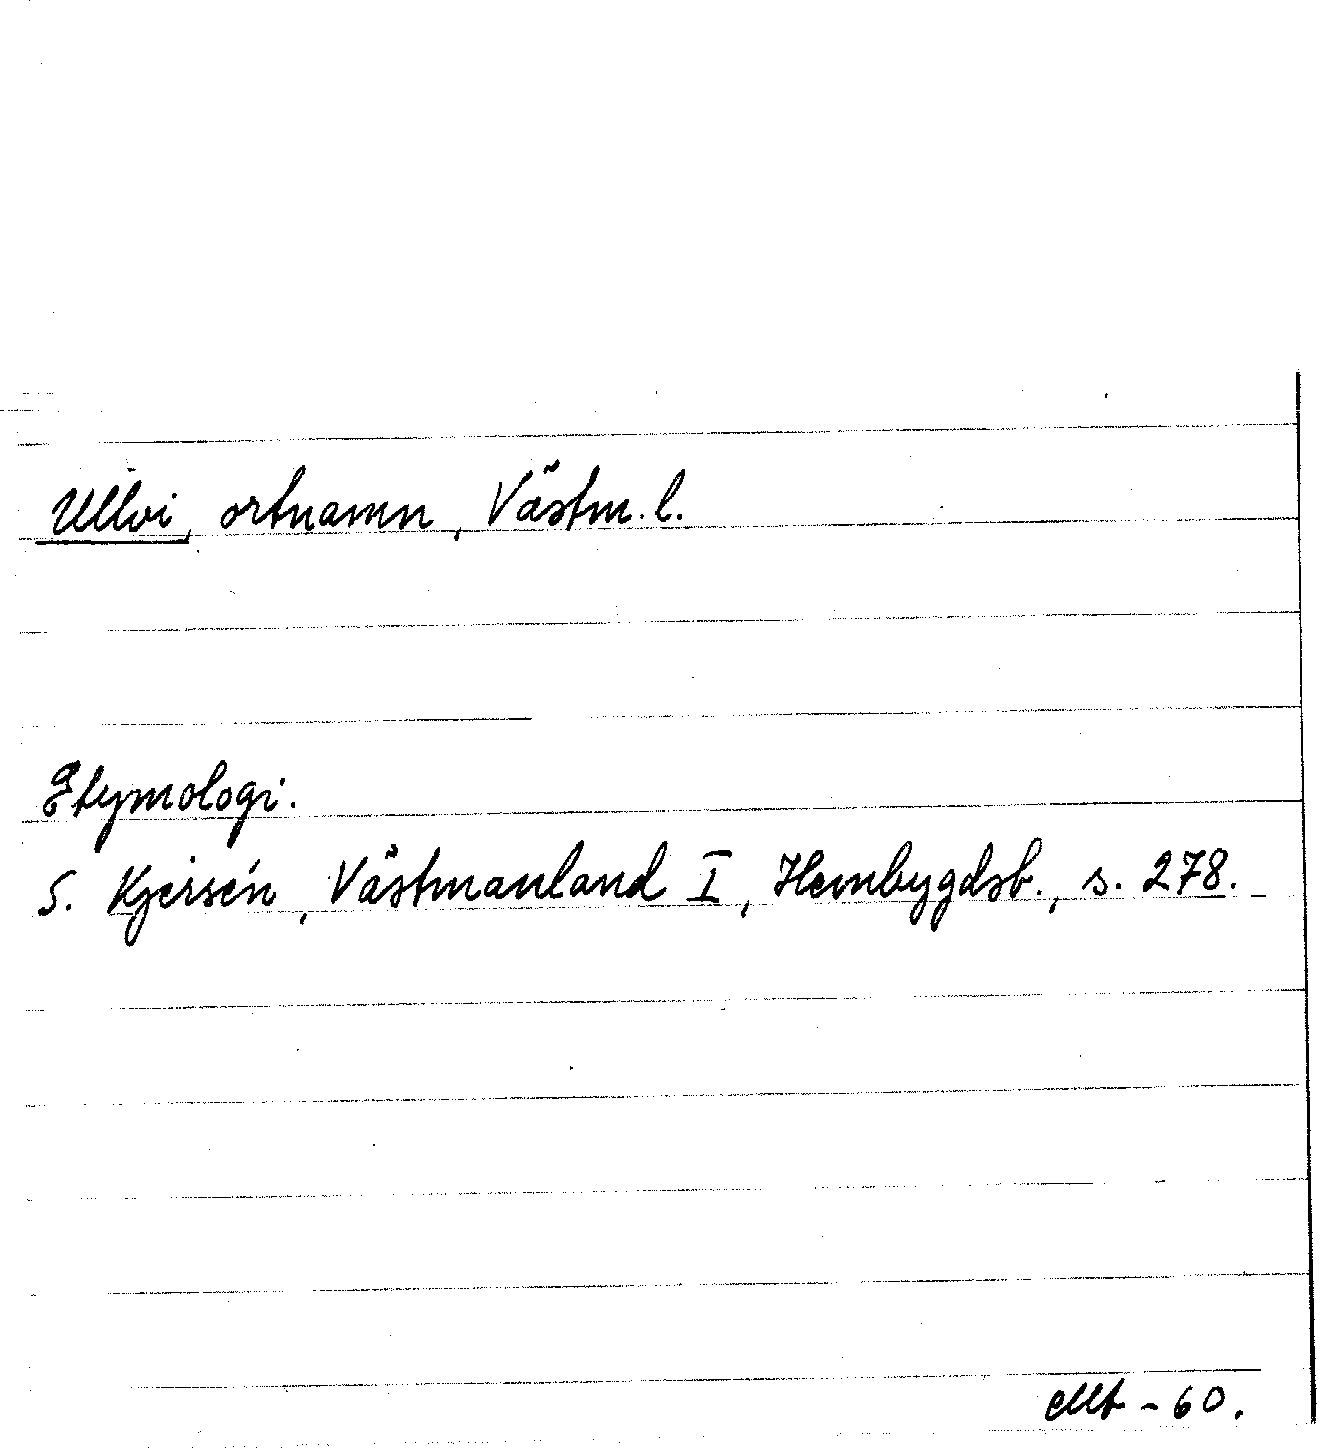 Ullvi, ortnamn, Västm. l.
Etymologi.
S. Kjersén, Västmanland I, Hembygdsb., s. 278. _
Mt - 60.